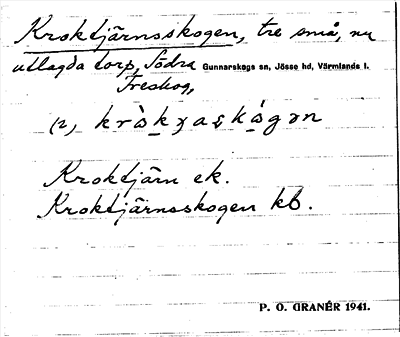 Kroktjärnsskogen, tre små, nu
utlagda torp, Södra Gunnarskogs sn, Jösse hd, Värmlands l.
Treskog,
(2) krò̱kɟaʂkà̱gən
Kroktjärn ek.
Kroktjärnsskogen kb.
P. O. GRANÉR 1941.